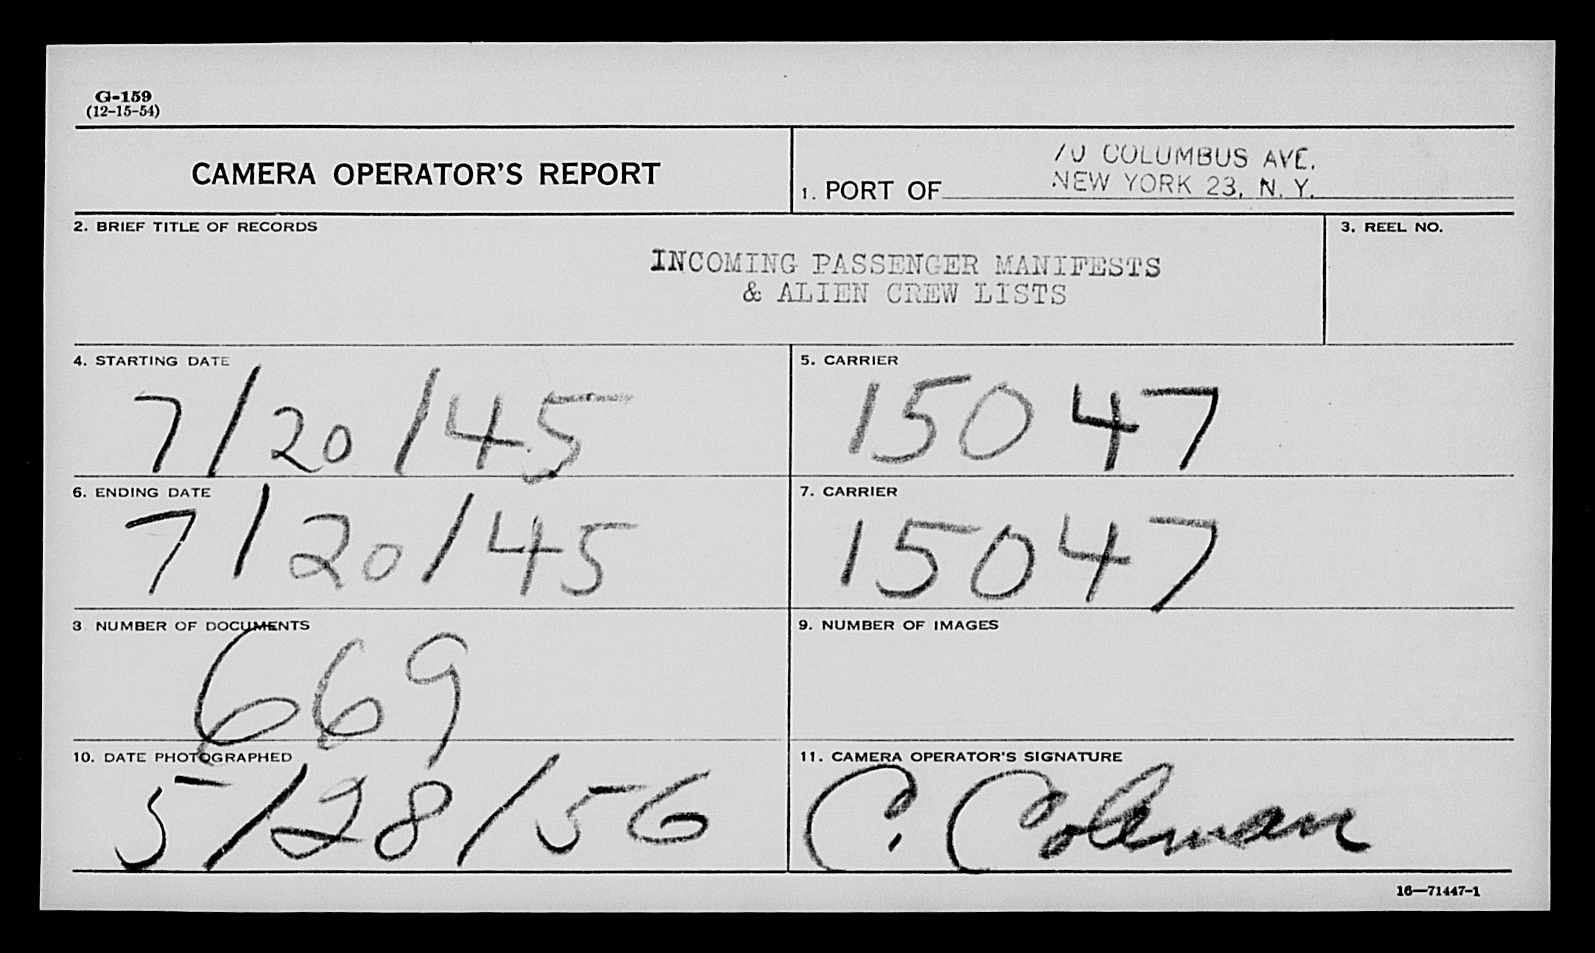 G-159
(12-15-54)
CAMERA OPERATOR'S REPORT
1. PORT OF
70 COLUMBUS AVE.
NEW YORK 23, N. Y.
2. BRIEF TITLE OF RECORDS
INCOMING PASSENGER MANIFESTS
& ALIEN CREW LISTS
3. REEL NO.
4. STARTING DATE
7/20/45
5. CARRIER
15047
6. ENDING DATE
7/20/45
7. CARRIER
15047
3 NUMBER OF DOCUMENTS
669
9. NUMBER OF IMAGES
10. DATE PHOTOGRAPHED
5/28/56
11. CAMERA OPERATOR'S SIGNATURE
C. Coleman
16—71447-1